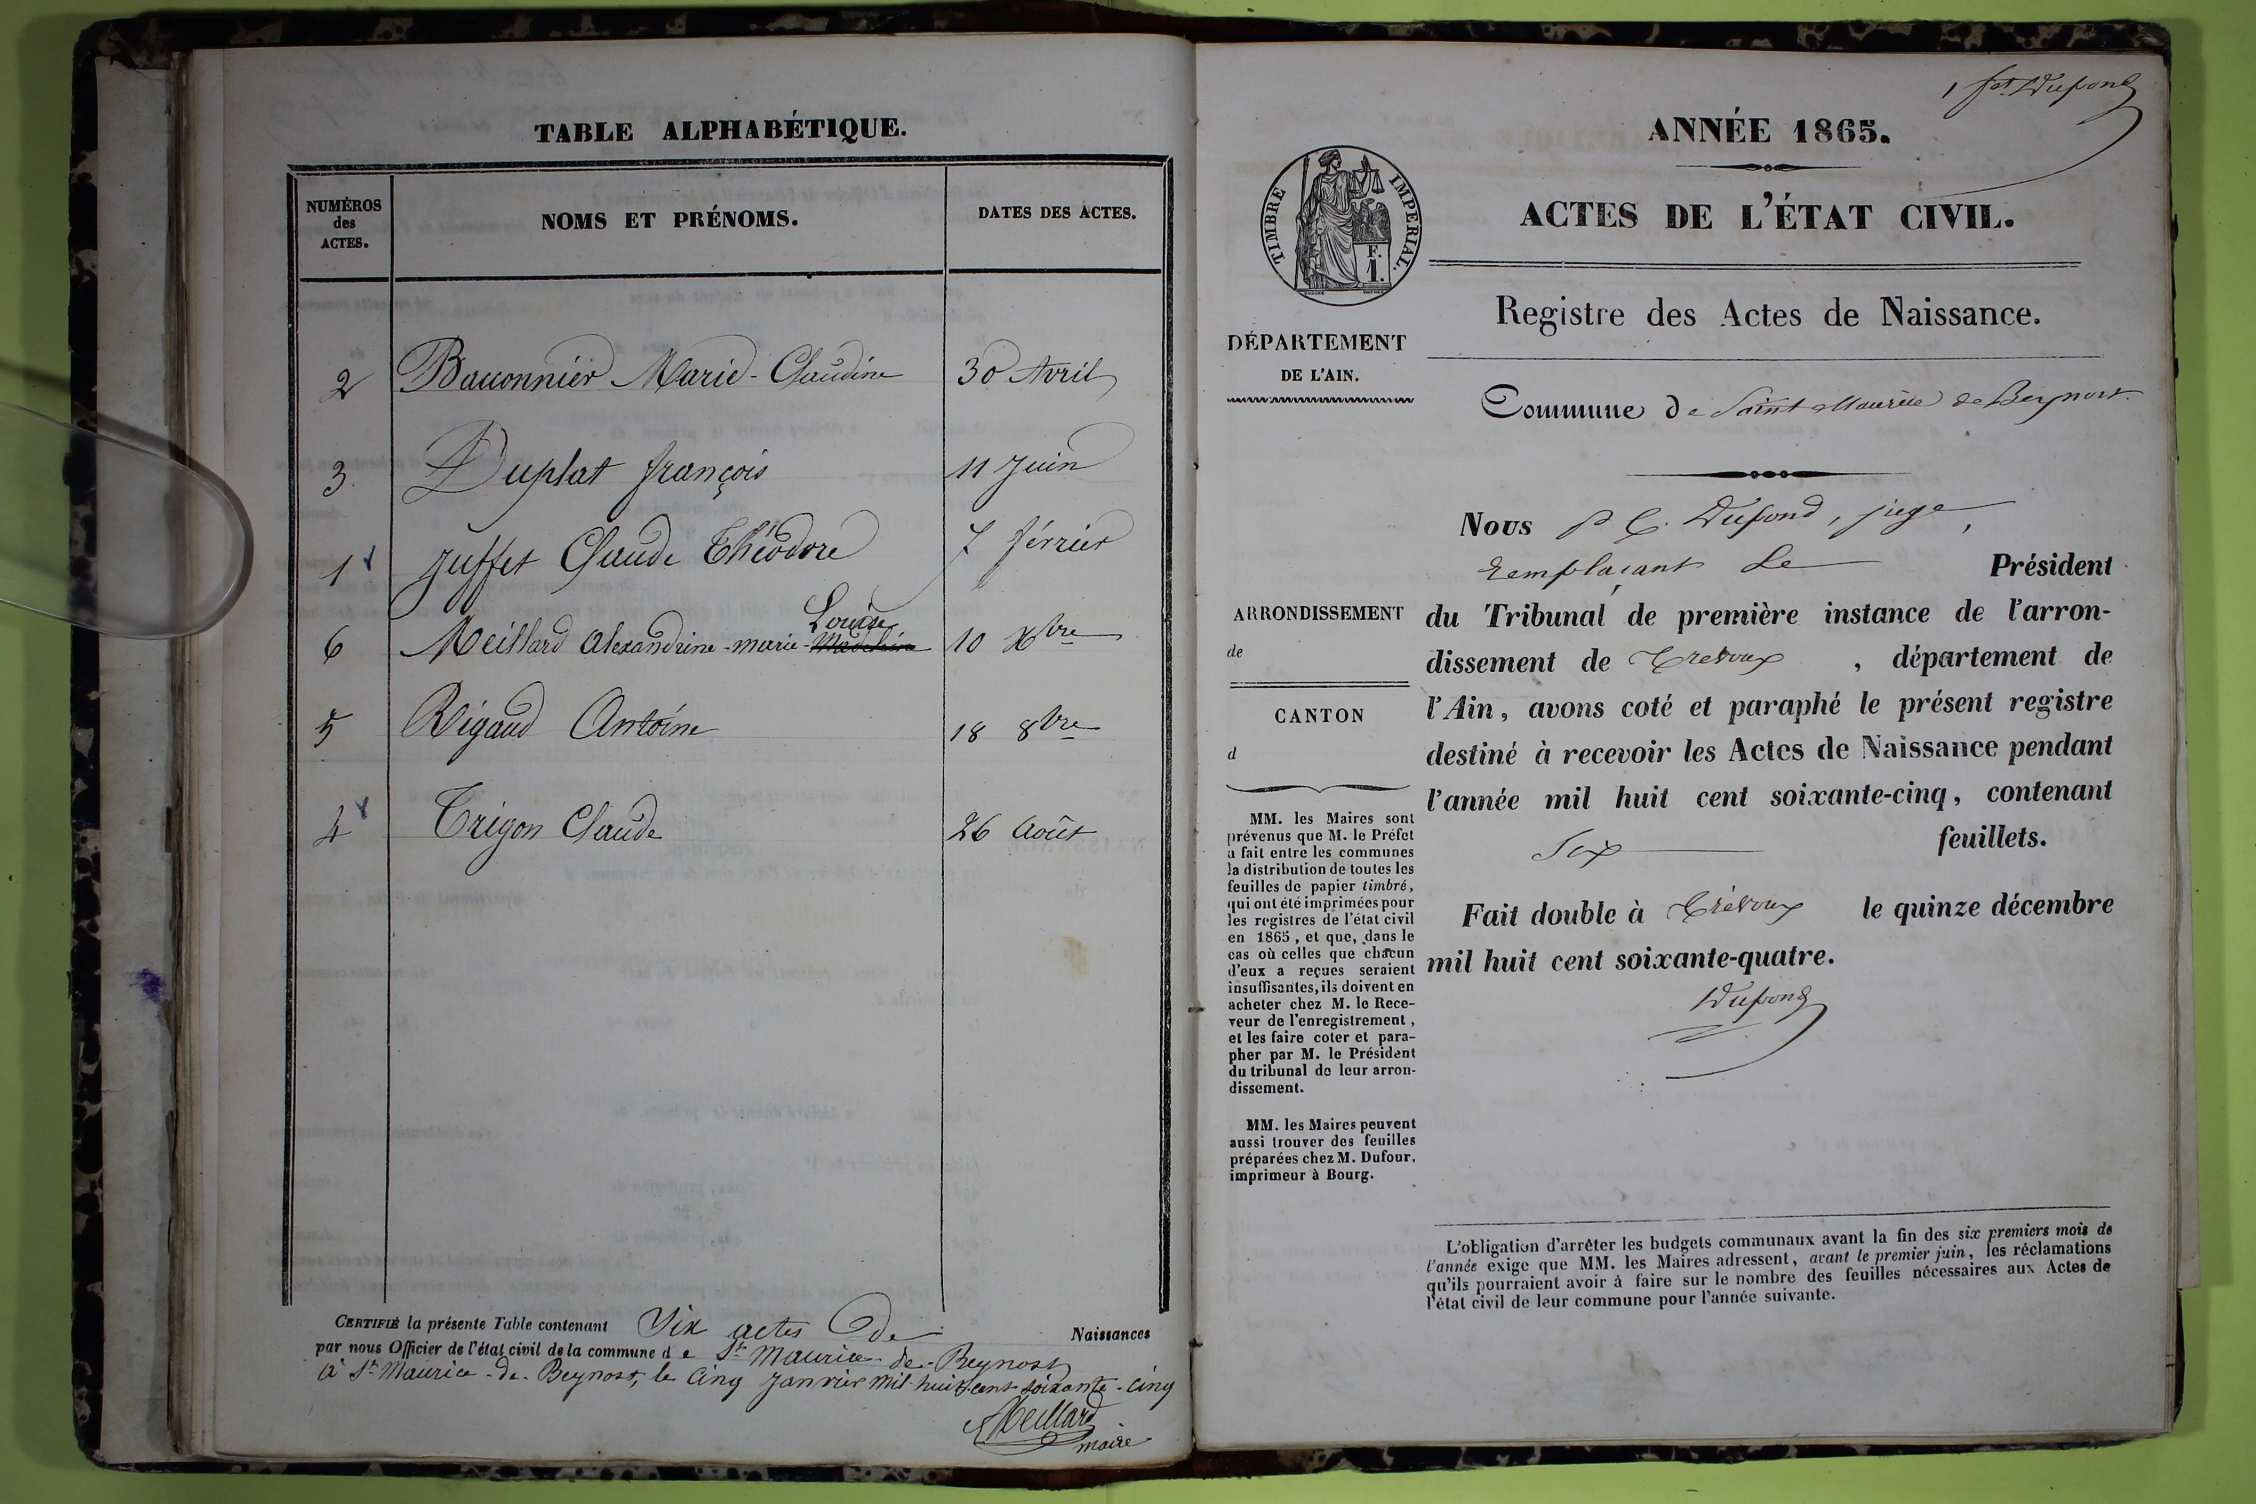 TABLE ALPHABÉTIQUE.
NUMÉROS
des
ACTES.
NOMS ET PRÉNOMS.
DATES DES ACTES.
2 Bacconnier Marie-Claudine 30 Avril
3. Duplat françois 11 Juin
1 Juffet Claude Théodore 7 février
Louise
6 Meillard Alexandrine-marie- 10 Xbre
5 Rigaud Antoine 18 8bre
4 Trigon Claude 26 Août
CERTIFIÉ la présente Table contenant Six actes de Naissances
par nous Officier de l'état civil de la commune de St Maurice-de-Beynost
à St Maurice-de-Beynost, le Cinq Janvier mil-huit-cent-soixante-cinq
Meillard
maire
1 fet Dupond
ANNÉE 1865.
ACTES DE L'ÉTAT CIVIL.
TIMBRE IMPERIAL.
F.
1.
Registre des Actes de Naissance.
DÉPARTEMENT
DE L'AIN.
Commune de Saint Maurice de Beynost.
Nous P C. Dupond, juge,
remplaçant Le Président
du Tribunal de première instance de l'arron-
dissement de Trévoux, département de
l'Ain, avons coté et paraphé le présent registre
destiné à recevoir les Actes de Naissance pendant
l'année mil huit cent soixante-cinq, contenant
Six feuillets.
Fait double à Trévoux le quinze décembre
mil huit cent soixante-quatre.
Dupond
ARRONDISSEMENT
de
CANTON
d
MM. les Maires sont
prévenus que M. le Préfet
a fait entre les communes
la distribution de toutes les
feuilles de papier timbré,
qui ont été imprimées pour
les registres de l'état civil
en 1865, et que, dans le
cas où celles que chacun
d'eux a reçues seraient
insuffisantes, ils doivent en
acheter chez M. le Rece-
veur de l'enregistrement,
et les faire coter et para-
pher par M. le Président
du tribunal de leur arron-
dissement.
MM. les Maires peuvent
aussi trouver des feuilles
préparées chez M. Dufour,
imprimeur à Bourg.
L'obligation d'arrêter les budgets communaux avant la fin des six premiers mois de
l'année exige que MM. les Maires adressent, avant le premier juin, les réclamations
qu'ils pourraient avoir à faire sur le nombre des feuilles nécessaires aux Actes de
l'état civil de leur commune pour l'année suivante.